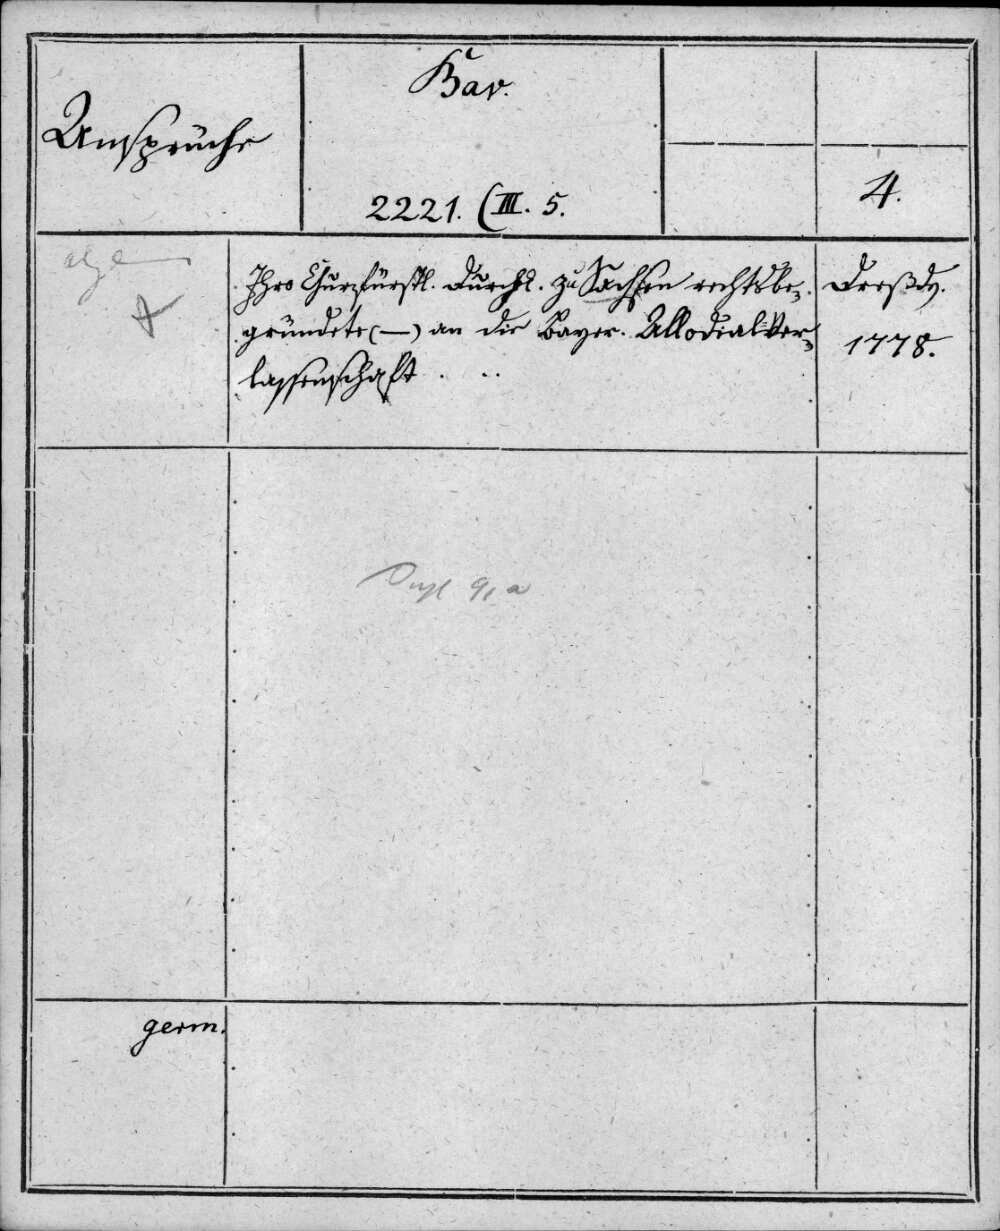 Ansprüche
Bav.
2221. (III. 5.
4.
Ihro Churfürstl. Durchl. zu Sachsen rechtsbe-
gründete (—) an die Bayer. Allodial-Ver-
lassenschaft . ..
Dreßdn.
1778.
germ.